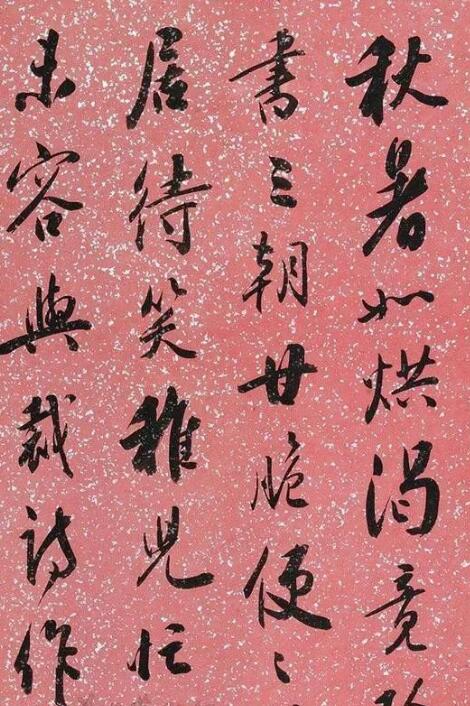 秋暑如烘渴竟
書三朝甘脆便
居待笑稚兒忙
未容與裁詩作